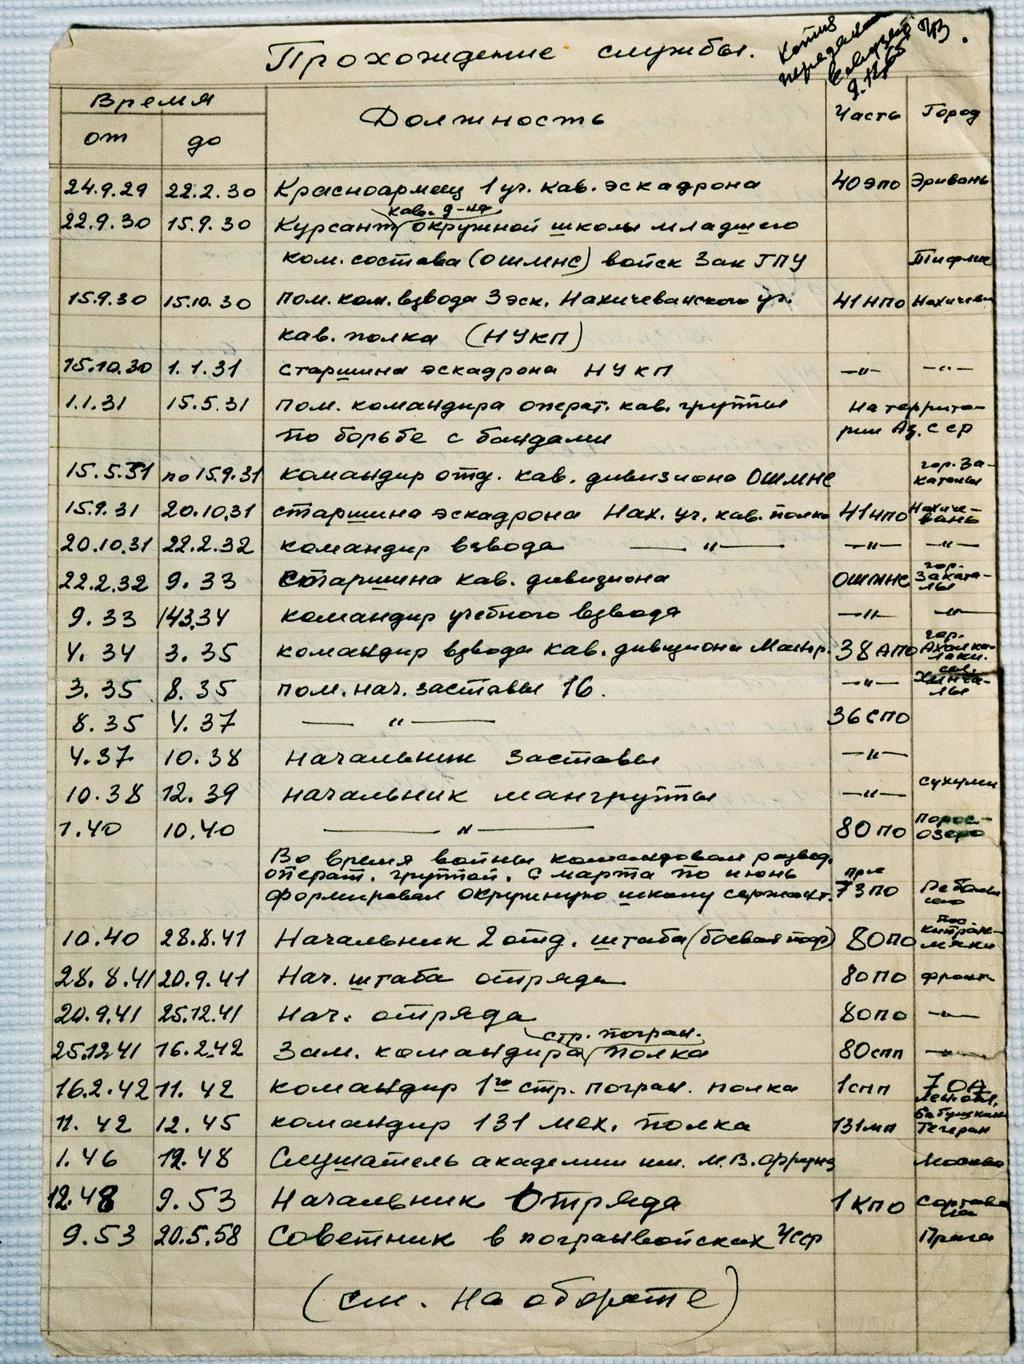 Прохождение службы.
Копия
передана
9.12.65
Время
от до Должность Часть Город
24.9.29 22.2.30 Красноармеец 1 уч. кав. эскадрона 40 эпо Эривань
кав. д-на
22.9.30 15.9.30 Курсант окружной школы младшего
ком. состава (ОШМНС) войск Зак ГПУ Тифлис
15.9.30 15.10.30 пом. ком. взвода 3 эск. Нахичеванского уч. 41 НПО Нахичеван
кав. полка (НУКП)
15.10.30 1.1.31 старшина эскадрона НУКП —"— —"—
1.1.31 15.5.31 пом. командира операт. кав. группы На террито-
по борьбе с бандами рии Аз. ССР
15.5.31 по 15.9.31 командир отд. кав. дивизиона ОШМНС гор. За-
каталы
15.9.31 20.10.31 старшина эскадрона Нах. уч. кав. полка 41 НПО Нахиче-
вань
20.10.31 22.2.32 командир взвода —"— —"— —"—
22.2.32 9.33 Старшина кав. дивизиона ОШМНС гор. Заката-
лы
9.33 143.34 командир учебного взвода —"— —"—
4.34 3.35 командир взвода кав. дивизиона Маньр. 38 АПО гор. Ахалка-
лаки.
3.35 8.35 пом. нач. заставы 16. —"— сел.
8.35 4.37 —"— 36 СПО
4.37 10.38 Начальник заставы —"—
10.38 12.39 Начальник мангруппы —"— Сухуми
1.40 10.40 —"— 80 ПО Порос-
озеро
Во время войны командовал развед.
операт. группой. С марта по июнь
формировал окружную школу сержант. при 73 ПО Реболы
село
10.40 28.8.41 Начальник 2 отд. штаба (боевая под) 80 ПО
28.8.41 20.9.41 Нач. штаба отряда 80 ПО фронт
20.9.41 25.12.41 Нач. отряда 80 ПО —"—
стр. погран.
25.12.41 16.2.42 Зам. командира полка 80 спп —"—
16.2.42 11.42 командир 1го стр. погран. полка 1 спп 7 ОА
11.42 12.45 командир 131 мех. полка 131 мп Бабушкин
Тегеран
1.46 12.48 Слушатель академии им. М.В. Фрунз Москва
12.48 9.53 Начальник Отряда 1 КПО Сортава
ла
9.53 20.5.58 Советник в погранвойсках ЧССР Прага
(см. на обороте)